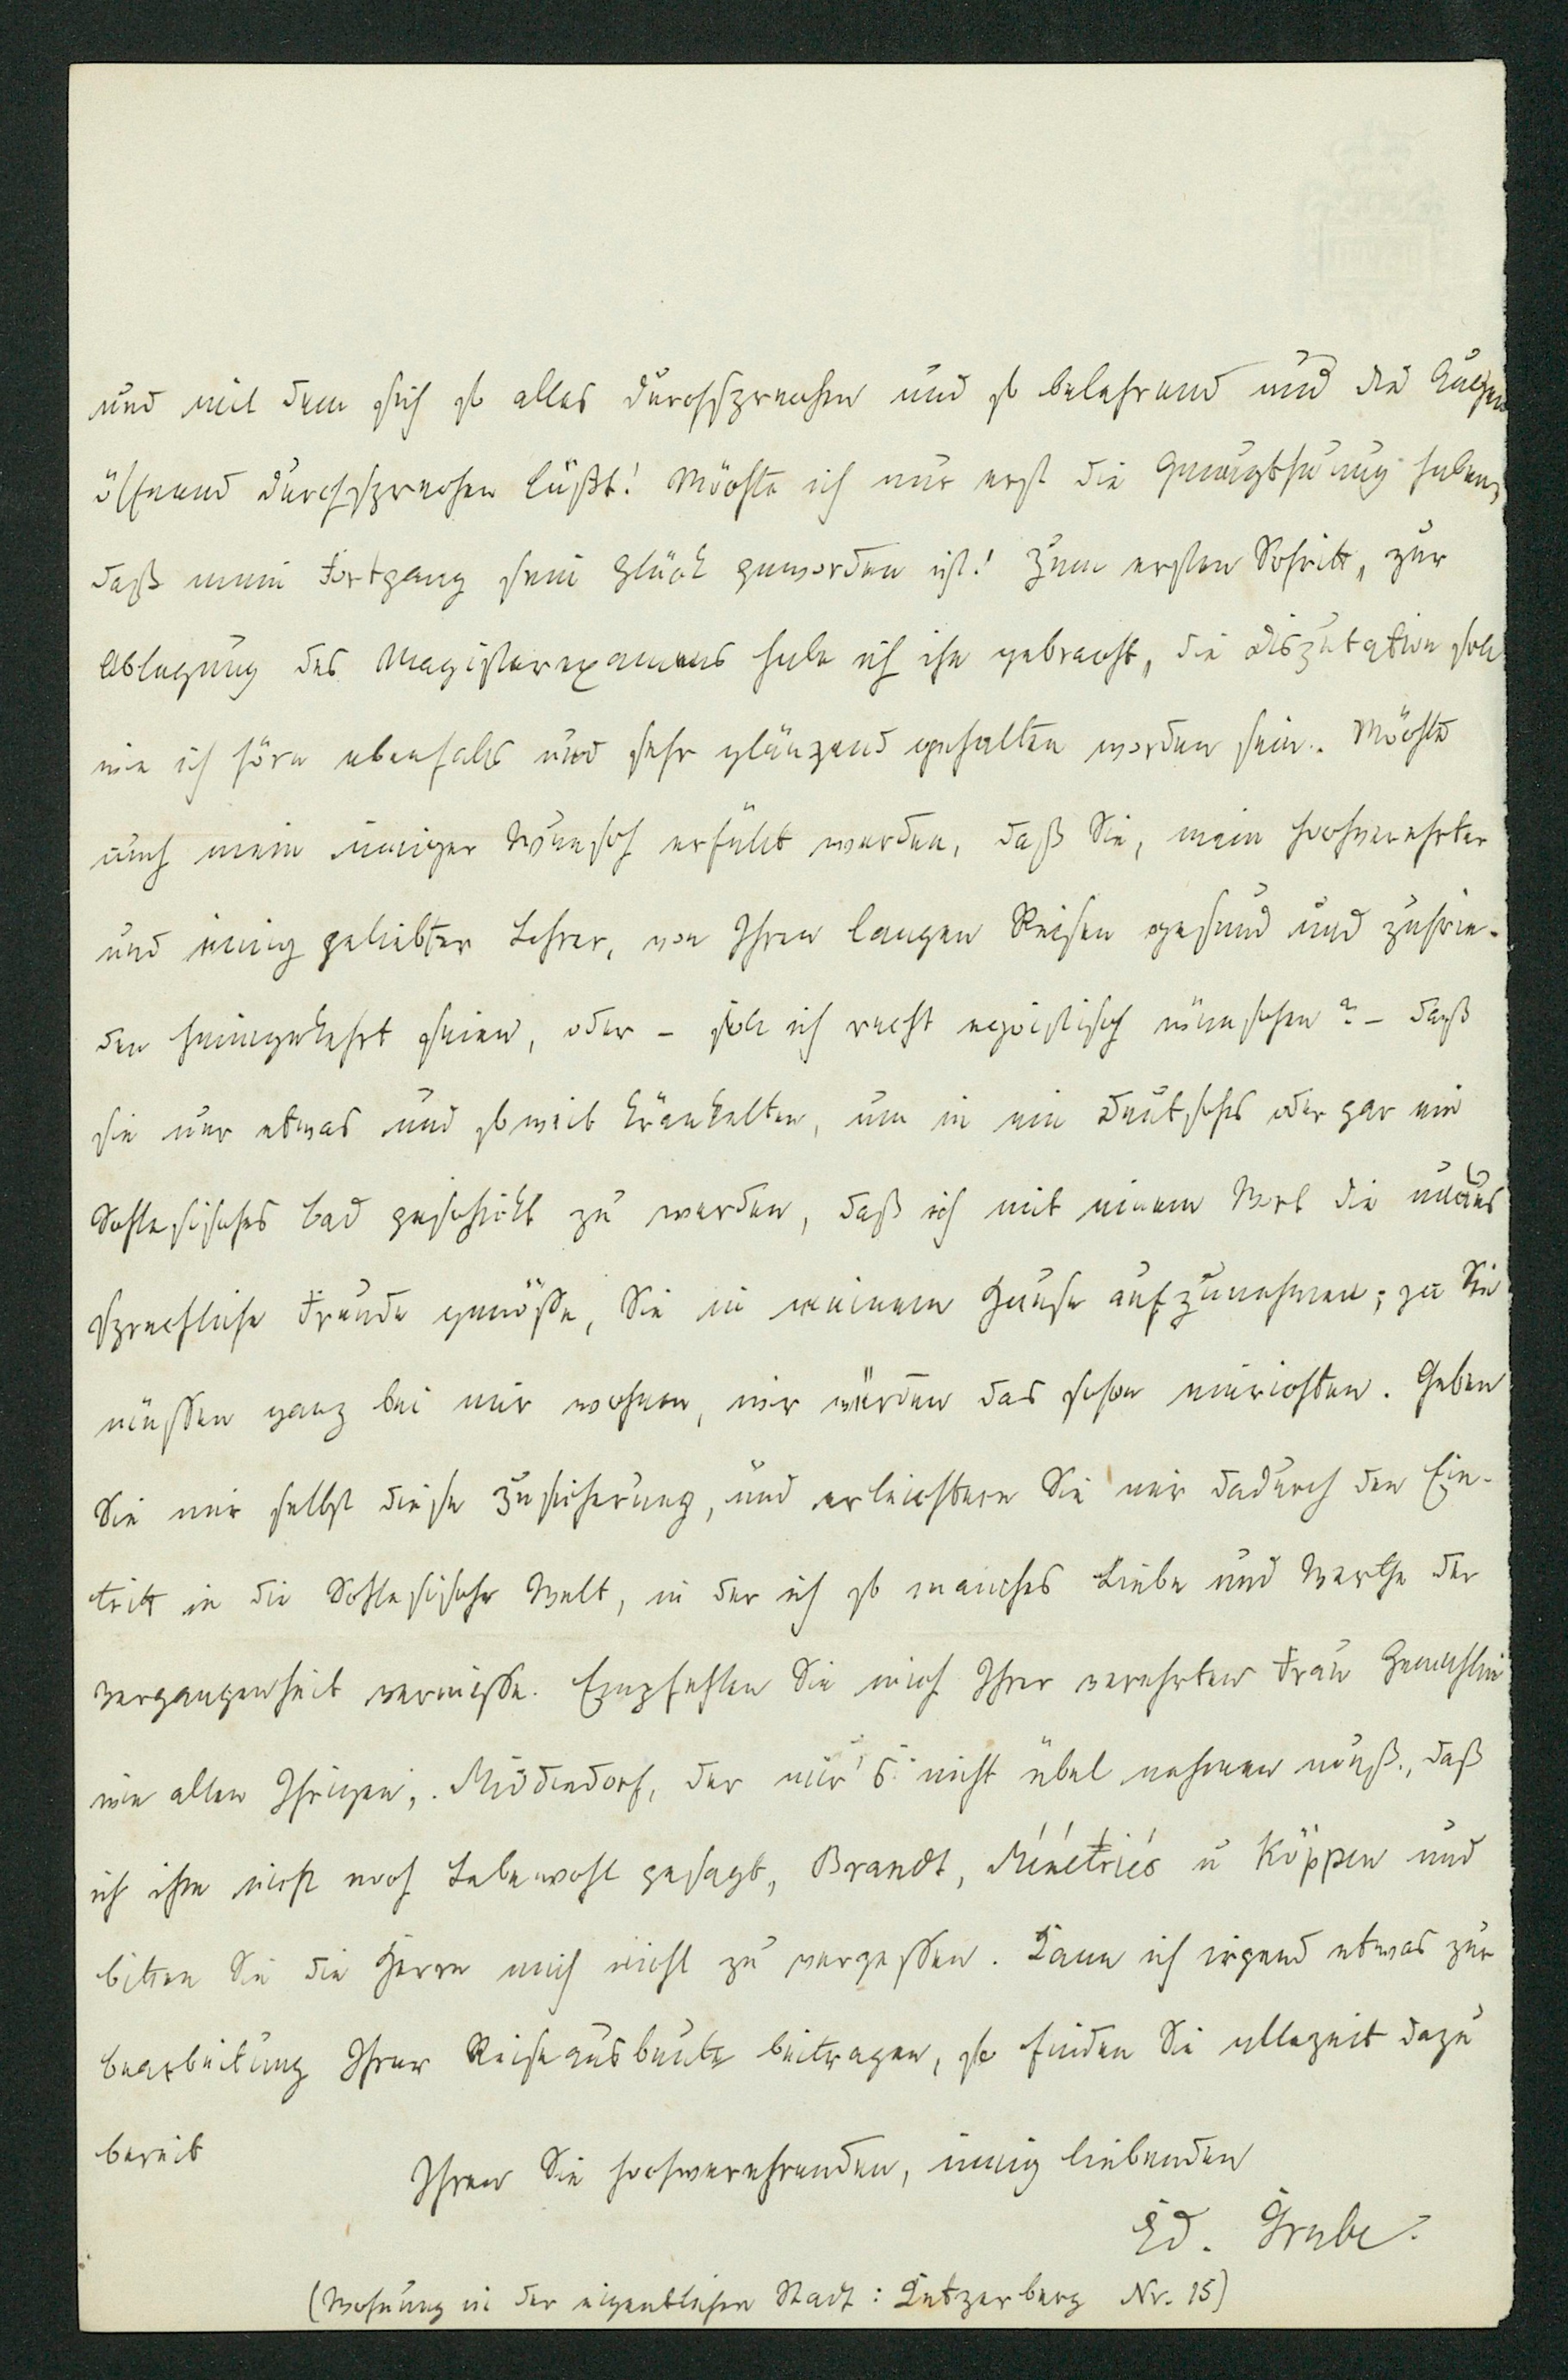 und mit dem sich so alles durchsprechen und so belehrend und die Augen
öffnend durchsprechen läßt! Möchte ich nur erst die Genugthuung haben,
daß mein Fortgang sein Glück geworden ist! Zum ersten Schritt, zur
Ablegung des Magisterexamens habe ich ihn gebracht, die Disputation soll
wie ich höre ebenfalls und sehr glänzend gehalten worden sein. Möchte
auch mein inniger Wunsch erfüllt werden, daß Sie, mein hochverehrter
und innig geliebter Lehrer, von Ihren langen Reisen gesund und zufrie-
den heimgekehrt seien, oder – soll ich recht egoistisch wünschen? – daß
sie nur etwas und so weit kränkelten, um in ein deutsches oder gar ein
Schlesisches Bad geschickt zu werden, daß ich mit einem Wort die unaus
sprechliche Freude genösse, Sie in meinem Hause aufzunehmen; ja Sie
müssen ganz bei mir wohnen, wir würden das schon einrichten. Geben
Sie mir selbst diese Zusicherung, und erleichtern Sie mir dadurch den Ein-
tritt in die Schlesische Welt, in der ich so manches Liebe und Werthe der
Vergangenheit vermisse. Empfehlen Sie mich Ihrer verehrten Frau Gemahlin
wie allen Ihrigen, Middendorf, der mir's nicht übel nehmen muß, daß
ich ihm nicht noch Lebewohl gesagt, Brandt, Ménétriés u Köppen und
bitten Sie die Herrn mich nicht zu vergessen. Kann ich irgend etwas zur
Bearbeitung Ihrer Reiseausbeute beitragen, so finden Sie allezeit dazu
bereit
Ihren Sie hochverehrenden, innig liebenden
Ed. Grube.
(Wohnung in der eigentlichen Stadt: Ketzerberg Nr. 15)